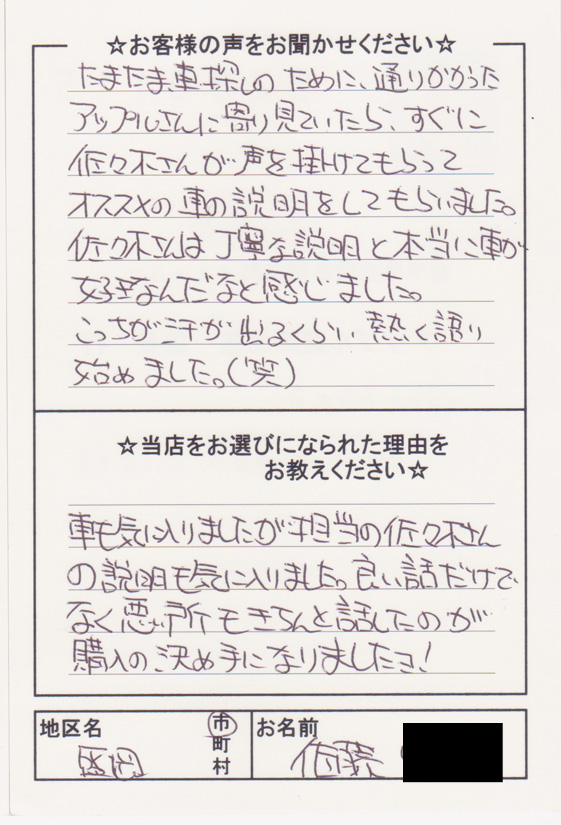 ☆お客様の声をお聞かせください☆
たまたま、車探しのために、通りかかった
アップルさんに寄り見ていたら、すぐに
佐々木さんが声を掛けてもらって
オススメの車の説明をしてもらいました。
佐々木さんは丁寧な説明と本当に車が
好きなんだなと感じました。
こっちが汗が出るくらい熱く語り
始めました。(笑)
☆当店をお選びになられた理由を
お教えください☆
車も気に入りましたが担当の佐々木さん
の説明も気に入りました。良い話だけで
なく悪い所もきちんと話したのが
購入の決め手になりましたヨ!
地区名
盛岡
市
町
村
お名前
佐藤